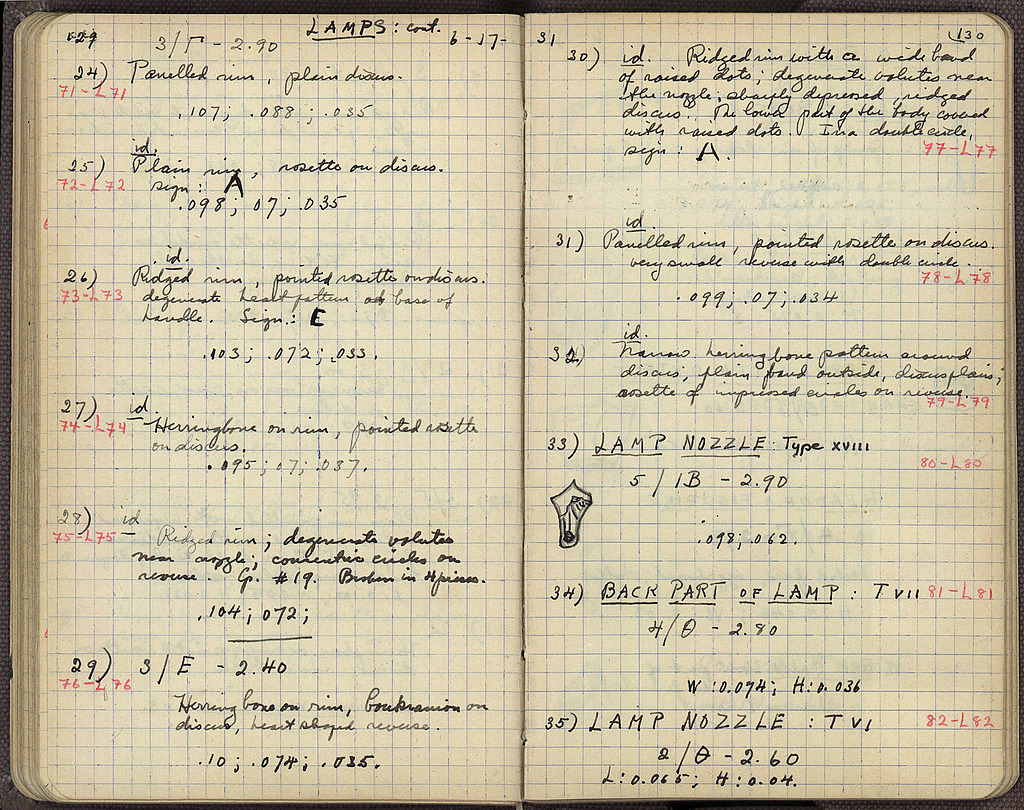 129 LAMPS: cont.
3/Γ - 2.90 6-17-31
24) Panelled rim, plain discus.
71-L71
.107; .088; .035
id.
25) Plain rim, rosette on discus.
72-L72 sign: A
.098; 07; .035
id.
26) Ridged rim, pointed rosette on discus.
73-L73 degenerate heart pattern at base of
handle. Sign.: E
.103; .072; .033.
27) id.
74-L74 Herringbone on rim, pointed rosette
on discus.
.095; 07; .037.
28) id
75-L75 Ridged rim; degenerate volutes
near nozzle; concentric circles on
reverse. Cp. #19. Broken in 4 pieces.
.104; 072;
29) 3/E - 2.40
76-L76
Herringbone on rim, boukranion on
discus, heart shaped reverse.
.10; .074; .035.
130
30) id. Ridged rim with a wide band
of raised dots; degenerate volutes near
the nozzle; sharply depressed, ridged
discus. The lower part of the body covered
with raised dots. In a double circle,
sign: A. 77-L77
id.
31) Panelled rim, pointed rosette on discus.
very small reverse with double circle.
78-L78
.099; .07; .034
id.
32) Narrow herringbone pattern around
discus, plain band outside, discus plain;
rosette of impressed circles on reverse.
79-L79
33) LAMP NOZZLE: Type XVIII
80-L80
5/IB - 2.90
.098; 062.
34) BACK PART OF LAMP: T VII 81-L81
4/Θ - 2.80
W: 0.074; H: 0.036
35) LAMP NOZZLE: T VI 82-L82
2/Θ - 2.60
L: 0.065; H: 0.04.